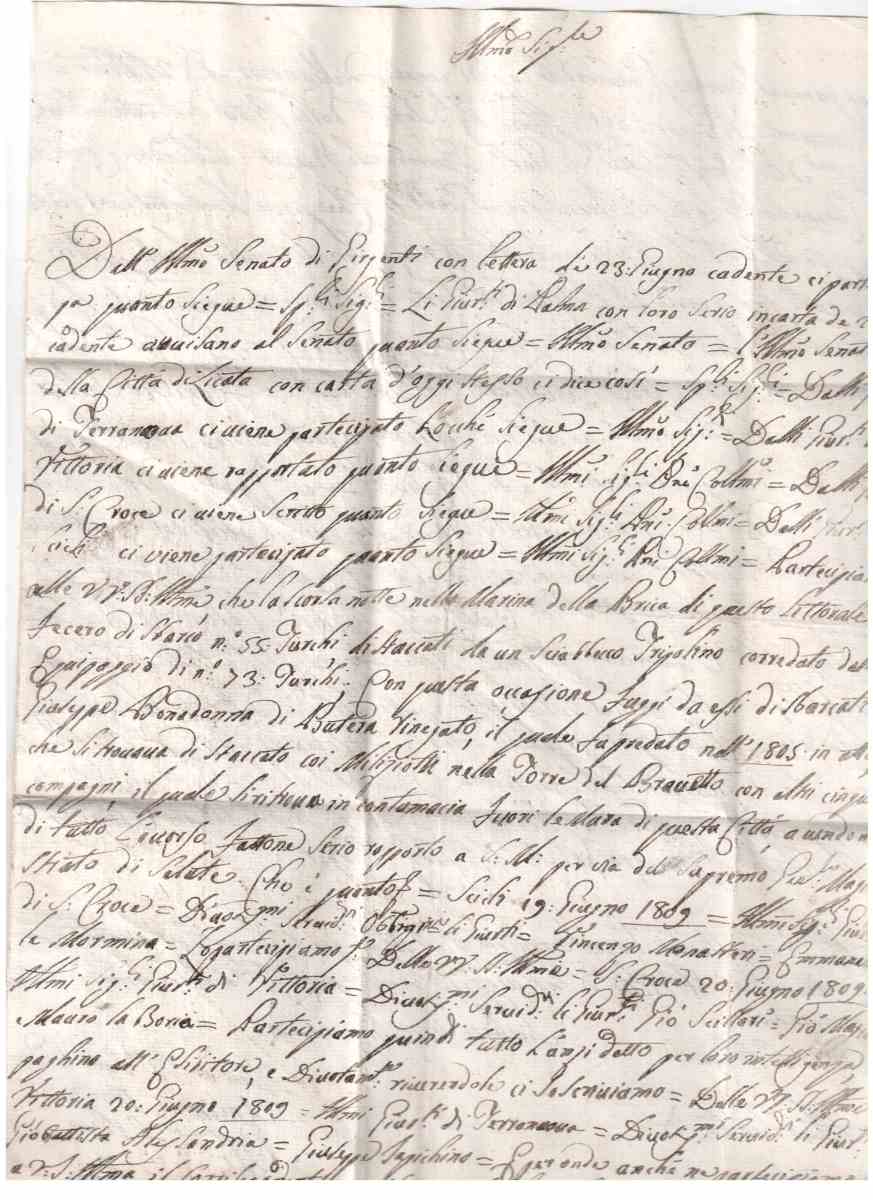 Illmo Sig.le
Dall' Illmo Senato di Girgenti con lettera de 23: Giugno cadente ci part
pa quanto siegue = Sp.li Sig.li = Li Giur.ti di Palma con loro Serio incarta de 2
cadente avvisano al Senato quanto siegue = Illmo Senato = l'Illmo Senat
della Città di Licata con carta d'oggi stesso ci dice così = Sp.li Sig.li = Dalli
di Terranova ci viene partecipato locchè siegue = Illmo Sig.r = Dalli Giur.ti
Vittoria ci viene rapportato quanto siegue = Illmi Sig.li Pni Collmi = Dalli
di S: Croce ci viene scritto quanto siegue = Illmi Sig.li Pni Collmi = Dalli Giur.ti
Scicli ci viene partecipato quanto siegue = Illmi Sig.li Pni Collmi = Partecipia
alle VV: SS: Illme che la scorsa notte nella Marina della Brica di questo littorale
fecero disbarco n.o 55 Turchi distaccati da un Sciabbecco Tripolino corredato dal
Equipaggio di n.o 73: Turchi. Con questa occasione fuggì da essi disbarcati
Giuseppe Bonadonna di Butera, il quale fu predato nell' 1805 in
che si trovava distaccato coi Miliziotti nella Torre del Brauetto con altri cinqu
compagni, il quale si ritrova in contumacia fuori le Mura di questa Città, avendo
di tutto l'occorso fattone Serio rapporto a S: M: per via del Supremo Mag
strato di Salute. Che è quanto = Scicli 19: Giugno 1809 = Illmi Sig.li Giur
di S: Croce = Divot.mi Servid.ri Obblig.mi li Giur.ti = Vincenzo = Emmanue
le Mormina = Lo partecipiamo Delle VV: SS: Illme = S: Croce 20: Giugno 1809
Illmi Sig.li Giur.ti di Vittoria = Divot.mi Servid.ri li Giur.ti Giò = Giò
Mauro la Boria = Partecipiamo quindi tutto l'anzidetto per loro intelligenza
paghino all' Esibitore, e Divotam.te riverendole ci soscriviamo = Delle VV: SS: Illme
Vittoria 20: Giugno 1809 = Illmi Giur.ti di Terranova = Divot.mi Servid.ri li Giur.ti
Giò Battista Alessandria = Giuseppe = E per onde anche ne partecipiamo
a V: S: Illma il